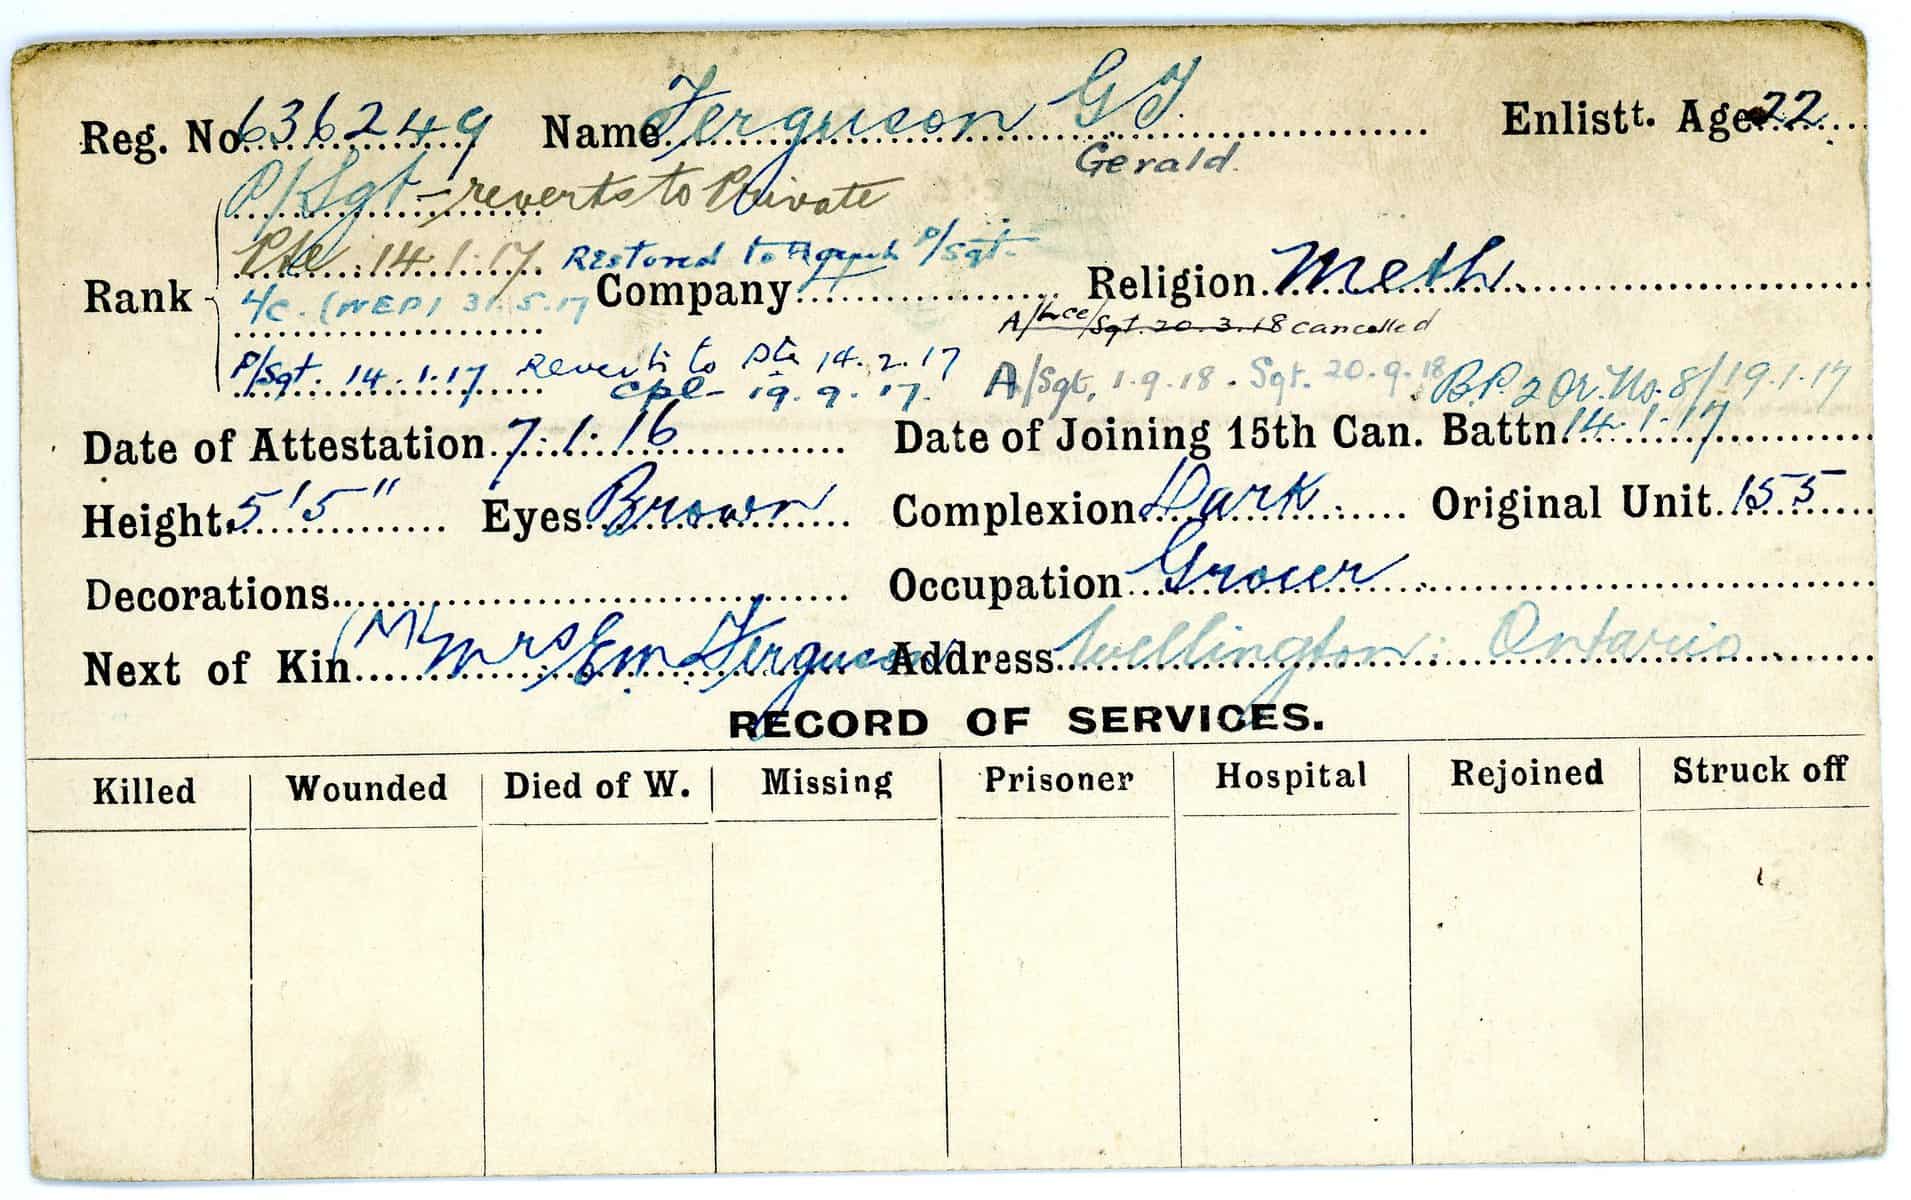 Reg. No. 636249 Name Ferguson G J. Enlistt. Age 22
Gerald.
P/Sgt - reverts to Private
Pte 14.1.17 Restored to P/Sgt.
Rank L/c. (WEP) 31.5.17 Company Religion Meth.
A/Lce/Sgt. 20.3.18 cancelled
P/Sgt. 14.1.17 Reverts to Pte 14.2.17
Cpl - 19.9.17. A/Sgt. 1.9.18. Sgt. 20.9.18 B.P. 2 Or. No. 8/19.1.17
Date of Attestation 7.1.16 Date of Joining 15th Can. Battn. 14.1.17
Height 5'5" Eyes Brown Complexion Dark Original Unit 155
Decorations Occupation Grocer
Next of Kin (M) Mrs Em Ferguson Address Wellington: Ontario
RECORD OF SERVICES.
Killed Wounded Died of W. Missing Prisoner Hospital Rejoined Struck off